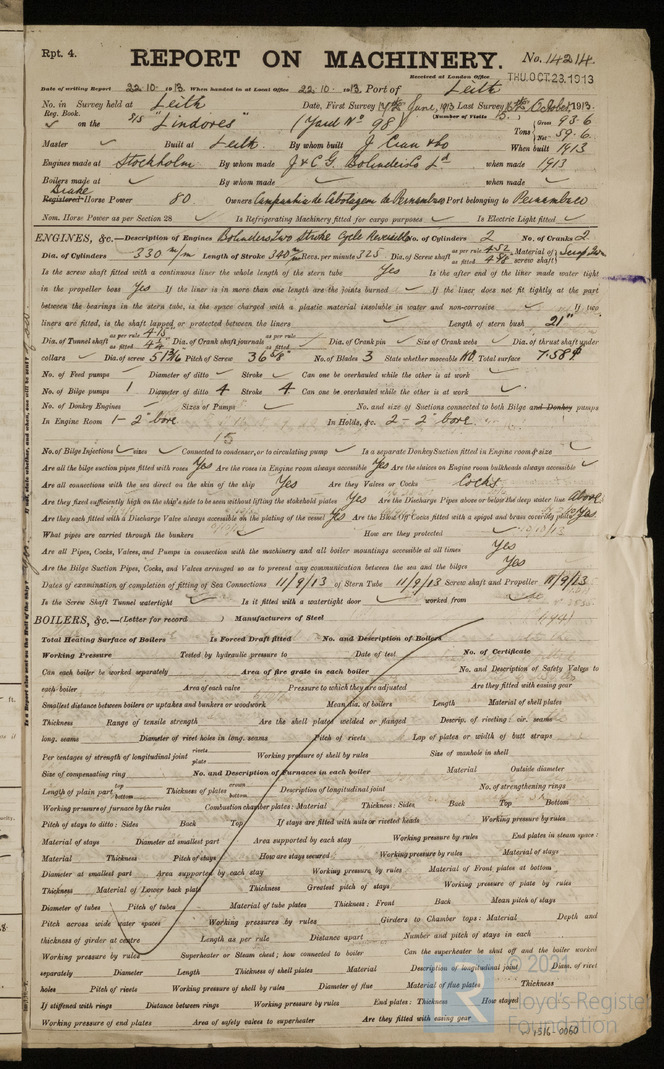 Rpt. 4.
REPORT ON MACHINERY.
No. 14214
Received at London Office THU. OCT. 23. 1913
Date of writing Report 22.10.1913 When handed in at Local Office 22.10.1913 Port of Leith
No. in Reg. Book. Survey held at Leith Date, First Survey June, 1913 Last Survey October 1913
(Number of Visits 15.)
✓ on the S/S "Lindores" (Yard No 98) Tons Gross 93.6 Net 59.6
Master ✓ Built at Leith By whom built J. Cran & Co When built 1913
Engines made at Stockholm By whom made J & C. G. Bolinders Co Ld when made 1913
Boilers made at ✓ By whom made ✓ when made ✓
Brake Registered Horse Power 80 Owners Companhia de Cabotagem de Pernambuco Port belonging to Pernambuco
Nom. Horse Power as per Section 28 ✓ Is Refrigerating Machinery fitted for cargo purposes ✓ Is Electric Light fitted ✓
ENGINES, &c.—Description of Engines Bolinders Two Stroke Cycle Reversible No. of Cylinders 2 No. of Cranks 2
Dia. of Cylinders 330 m/m Length of Stroke 340 m/m Revs. per minute 325 Dia. of Screw shaft as per rule 4.52 as fitted 4.98 Material of screw shaft
Is the screw shaft fitted with a continuous liner the whole length of the stern tube Yes Is the after end of the liner made water tight
in the propeller boss Yes If the liner is in more than one length are the joints burned ✓ If the liner does not fit tightly at the part
between the bearings in the stern tube, is the space charged with a plastic material insoluble in water and non-corrosive ✓ If two
liners are fitted, is the shaft lapped or protected between the liners ✓ Length of stern bush 21"
Dia. of Tunnel shaft as per rule 4.15 as fitted Dia. of Crank shaft journals as per rule as fitted ✓ Dia. of Crank pin ✓ Size of Crank webs ✓ Dia. of thrust shaft under
collars ✓ Dia. of screw Pitch of Screw No. of Blades 3 State whether moveable No Total surface 7.58 ф
No. of Feed pumps ✓ Diameter of ditto ✓ Stroke ✓ Can one be overhauled while the other is at work ✓
No. of Bilge pumps 1 Diameter of ditto 4 Stroke 4 Can one be overhauled while the other is at work ✓
No. of Donkey Engines ✓ Sizes of Pumps ✓ No. and size of Suctions connected to both Bilge and Donkey pumps
In Engine Room 1 - 2" bore In Holds, &c. 2 - 2" bore
15
No. of Bilge Injections ✓ sizes ✓ Connected to condenser, or to circulating pump ✓ Is a separate Donkey Suction fitted in Engine room & size ✓
Are all the bilge suction pipes fitted with roses Yes Are the roses in Engine room always accessible Yes Are the sluices on Engine room bulkheads always accessible ✓
Are all connections with the sea direct on the skin of the ship Yes Are they Valves or Cocks Cocks
Are they fixed sufficiently high on the ship's side to be seen without lifting the stokehold plates Yes Are the Discharge Pipes above or below the deep water line Above
Are they each fitted with a Discharge Valve always accessible on the plating of the vessel Yes Are the Blow Off Cocks fitted with a spigot and brass covering plate Yes
What pipes are carried through the bunkers ✓ How are they protected ✓
Are all Pipes, Cocks, Valves, and Pumps in connection with the machinery and all boiler mountings accessible at all times Yes
Are the Bilge Suction Pipes, Cocks, and Valves arranged so as to prevent any communication between the sea and the bilges Yes
Dates of examination of completion of fitting of Sea Connections 11/9/13 of Stern Tube 11/9/13 Screw shaft and Propeller 11/9/13
Is the Screw Shaft Tunnel watertight ✓ Is it fitted with a watertight door ✓ worked from ✓
BOILERS, &c.—(Letter for record ) Manufacturers of Steel
Total Heating Surface of Boilers Is Forced Draft fitted No. and Description of Boilers
Working Pressure Tested by hydraulic pressure to Date of test No. of Certificate
Can each boiler be worked separately Area of fire grate in each boiler No. and Description of Safety Valves to
each boiler Area of each valve Pressure to which they are adjusted Are they fitted with easing gear
Smallest distance between boilers or uptakes and bunkers or woodwork Mean dia. of boilers Length Material of shell plates
Thickness Range of tensile strength Are the shell plates welded or flanged Descrip. of riveting: cir. seams
long. seams Diameter of rivet holes in long. seams Pitch of rivets Lap of plates or width of butt straps
Per centages of strength of longitudinal joint rivets plate Working pressure of shell by rules Size of manhole in shell
Size of compensating ring No. and Description of Furnaces in each boiler Material Outside diameter
Length of plain part top bottom Thickness of plates crown bottom Description of longitudinal joint No. of strengthening rings
Working pressure of furnace by the rules Combustion chamber plates: Material Thickness: Sides Back Top Bottom
Pitch of stays to ditto: Sides Back Top If stays are fitted with nuts or riveted heads Working pressure by rules
Material of stays Diameter at smallest part Area supported by each stay Working pressure by rules End plates in steam space:
Material Thickness Pitch of stays How are stays secured Working pressure by rules Material of stays
Diameter at smallest part Area supported by each stay Working pressure by rules Material of Front plates at bottom
Thickness Material of Lower back plate Thickness Greatest pitch of stays Working pressure of plate by rules
Diameter of tubes Pitch of tubes Material of tube plates Thickness: Front Back Mean pitch of stays
Pitch across wide water spaces Working pressures by rules Girders to Chamber tops: Material Depth and
thickness of girder at centre Length as per rule Distance apart Number and pitch of stays in each
Working pressure by rules Superheater or Steam chest; how connected to boiler Can the superheater be shut off and the boiler worked
separately Diameter Length Thickness of shell plates Material Description of longitudinal joint Diam. of rivet
holes Pitch of rivets Working pressure of shell by rules Diameter of flue Material of flue plates Thickness
If stiffened with rings Distance between rings Working pressure by rules End plates: Thickness How stayed
Working pressure of end plates Area of safety valves to superheater Are they fitted with easing gear
© 2021
Lloyd's Register
Foundation
W1516-0060